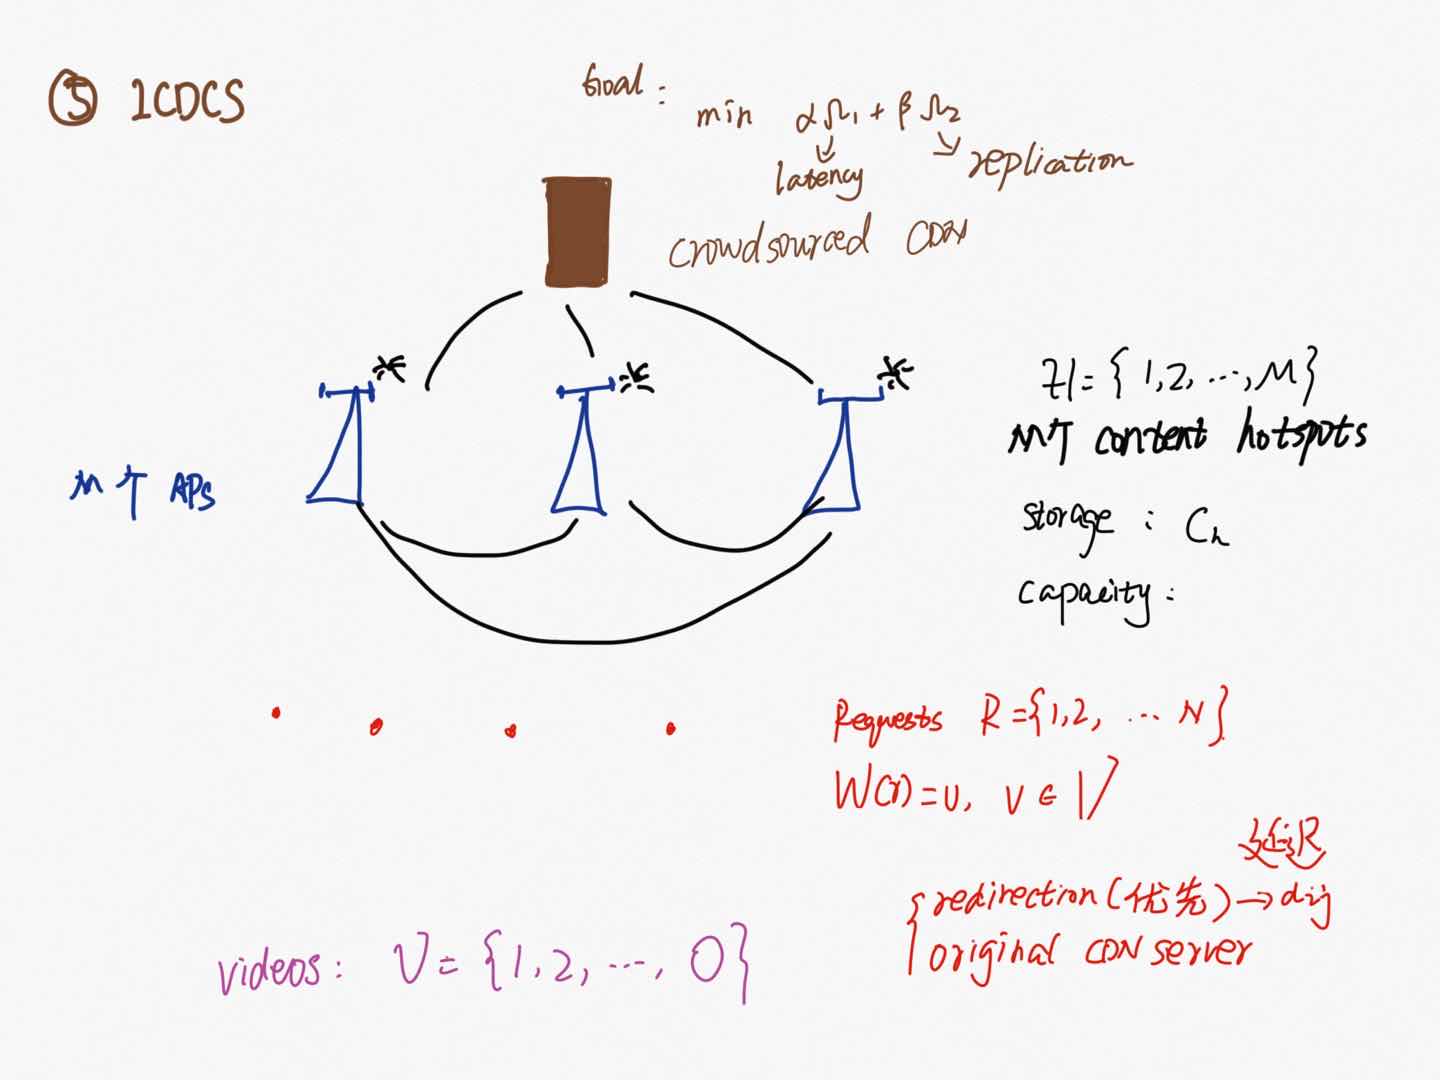 ⑤ ICDCS
Goal:
min αΩ₁ + βΩ₂
latency
replication
crowdsourced CDN
H = {1,2, ..., M}
M个 content hotspots
M个 APs
storage : Cₕ
capacity :
Requests R = {1,2, ... N}
W(r) = v, v ∈ V
延迟
{ redirection(优先) → dij
original CDN server
videos: V = {1,2, ..., O}